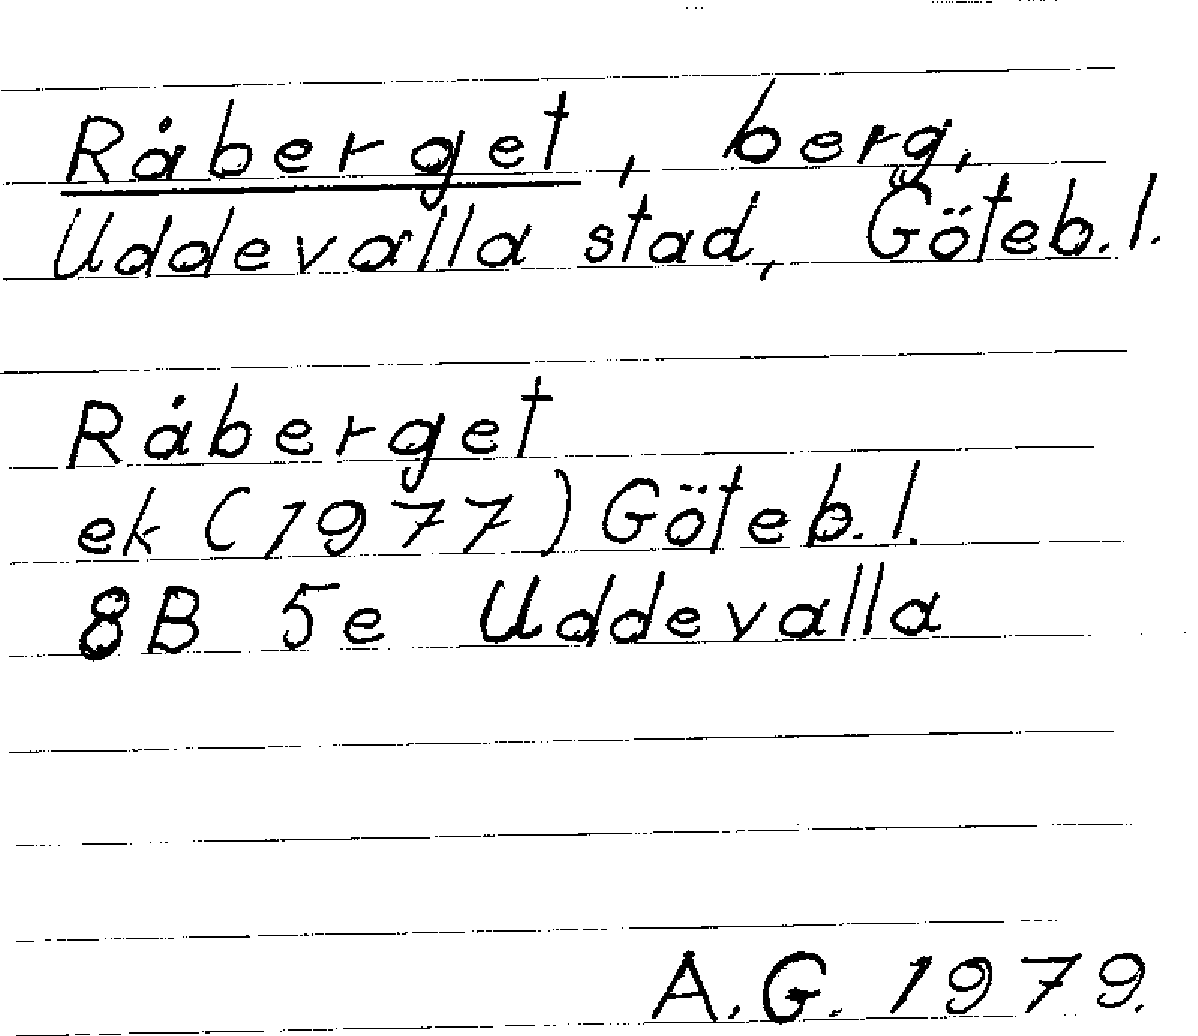 Råberget, berg,
Uddevalla stad, Göteb.l.
Råberget
ek (1977) Göteb.l.
8B 5e Uddevalla
A.G. 1979.